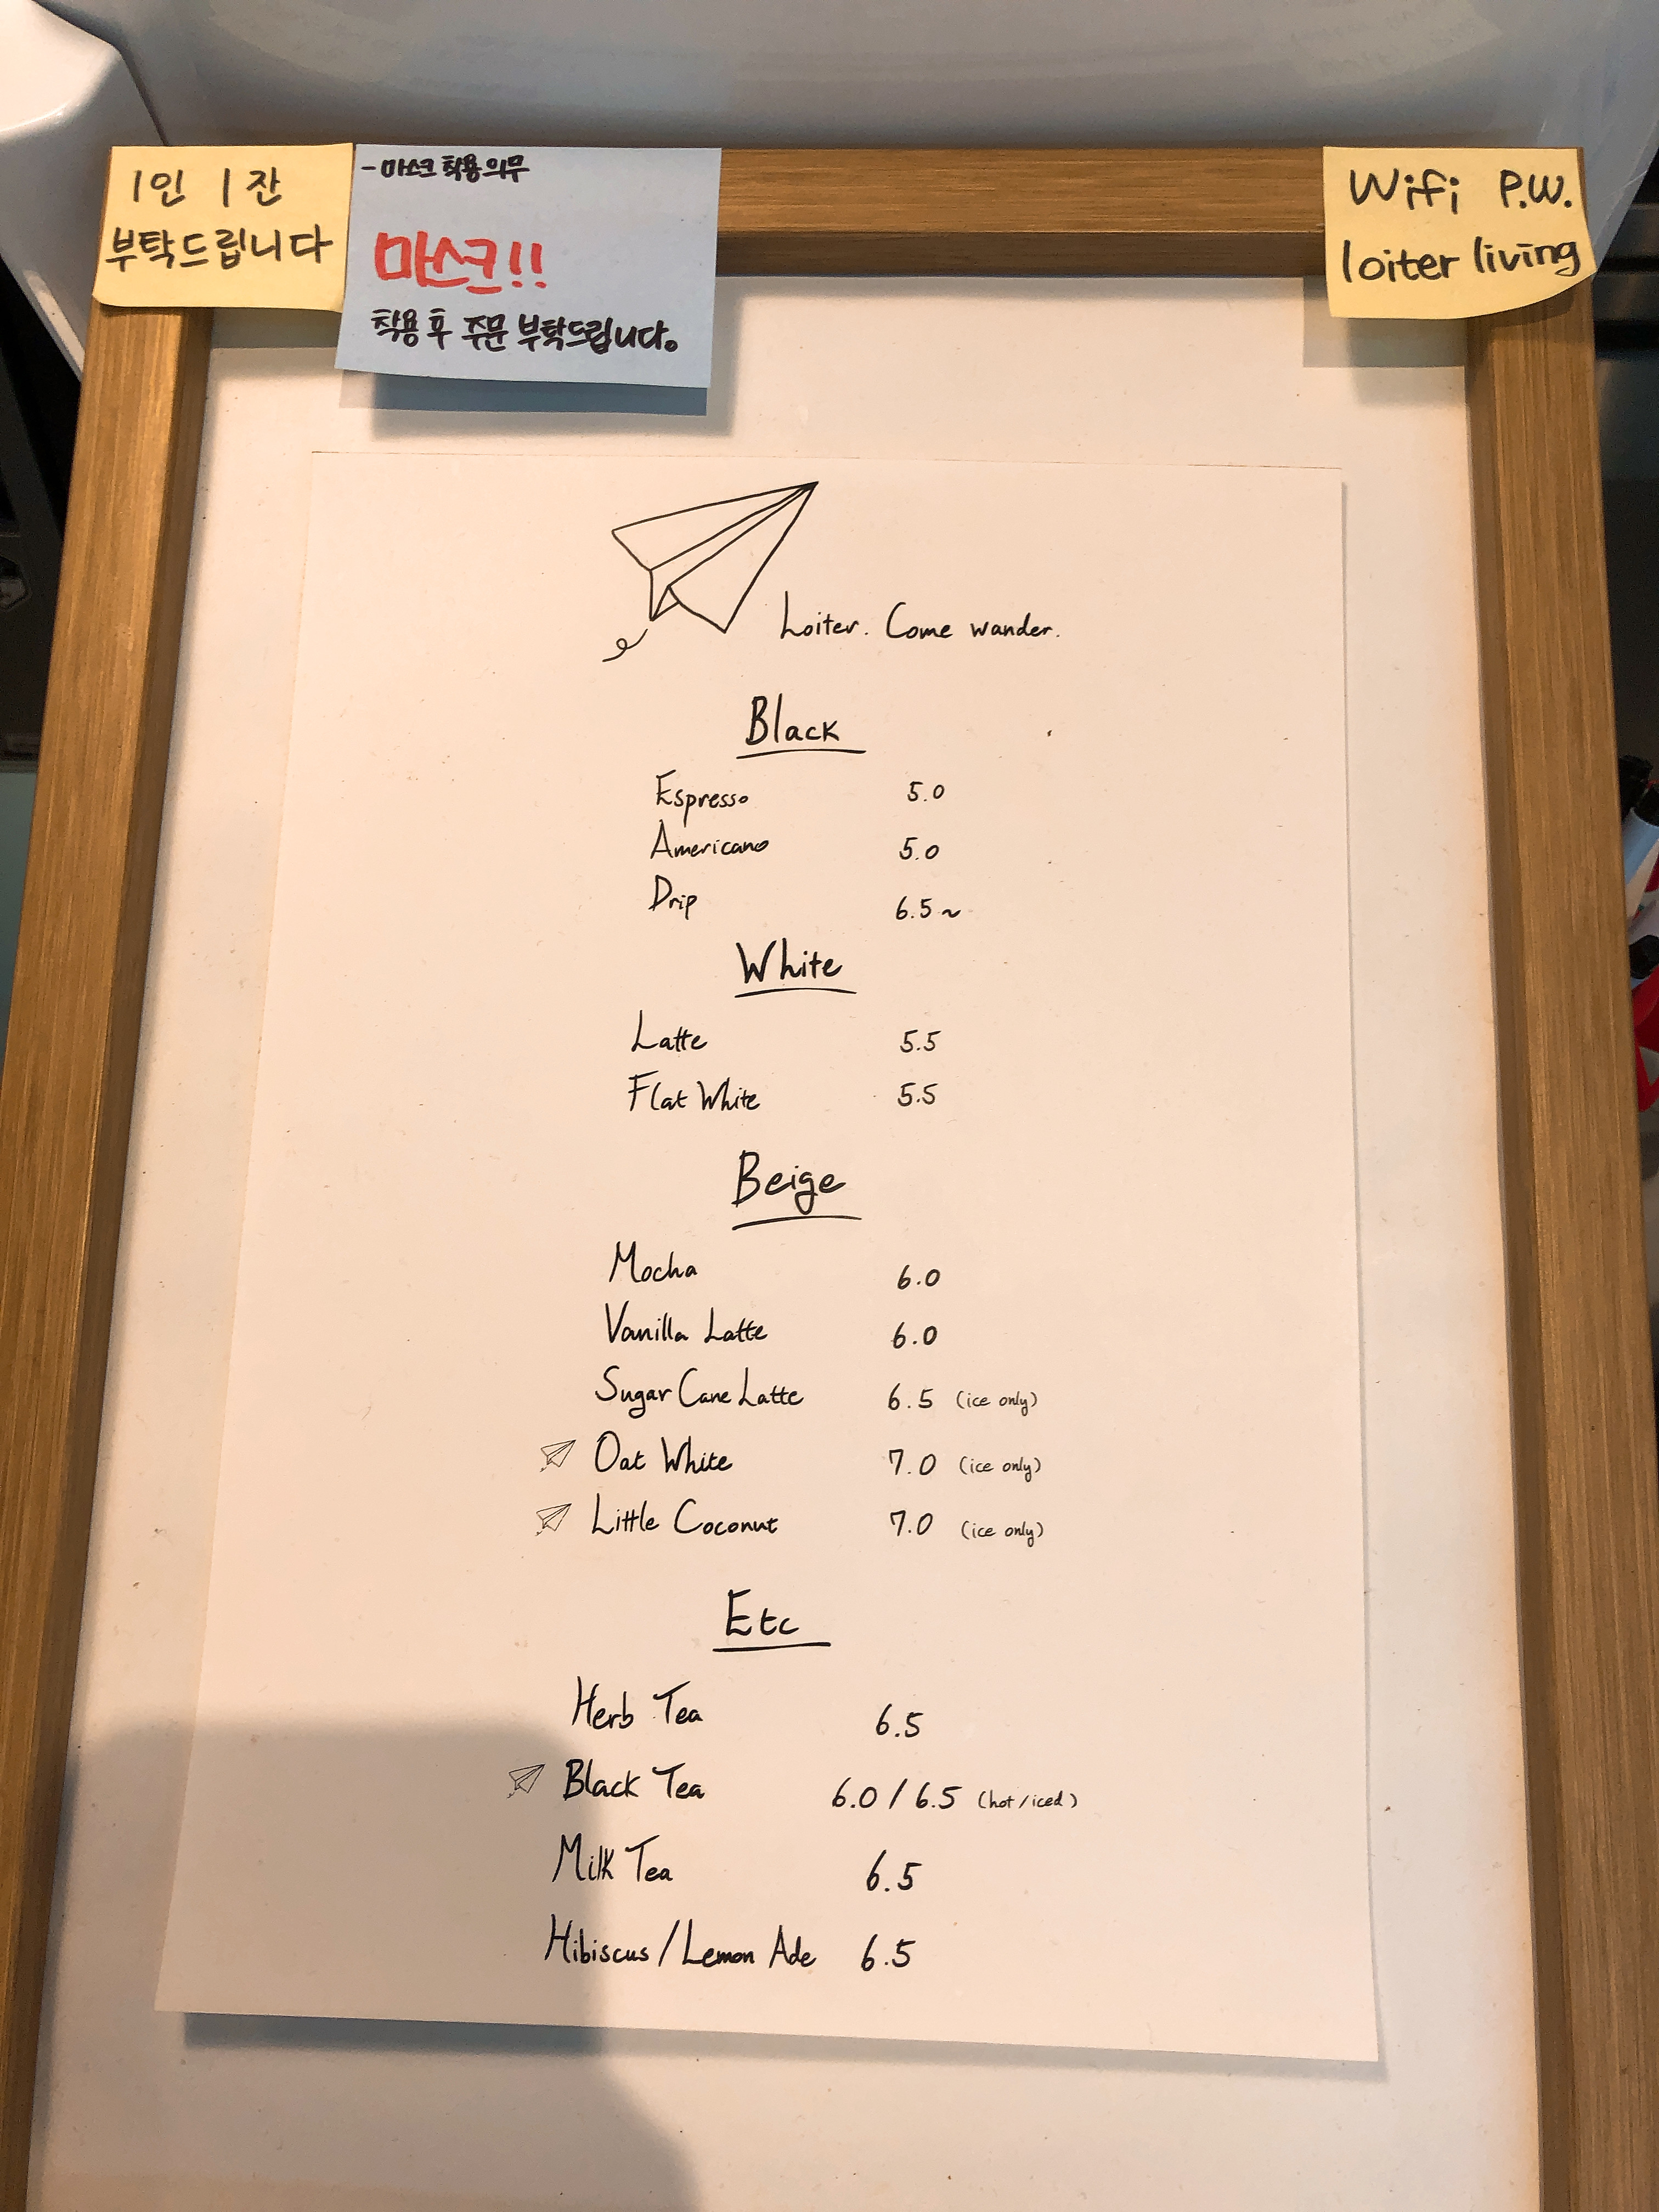 1인 1잔
부탁드립니다
- 마스크 착용 의무
마스크!!
착용 후 주문 부탁드립니다.
Wifi P.W.
loiter living
Loiter. Come wander.
Black
Espresso 5.0
Americano 5.0
Drip 6.5~
White
Latte 5.5
Flat White 5.5
Beige
Mocha 6.0
Vanilla Latte 6.0
Sugar Cane Latte 6.5 (ice only)
Oat White 7.0 (ice only)
Little Coconut 7.0 (ice only)
Etc
Herb Tea 6.5
Black Tea 6.0 / 6.5 (hot/iced)
Milk Tea 6.5
Hibiscus / Lemon Ade 6.5